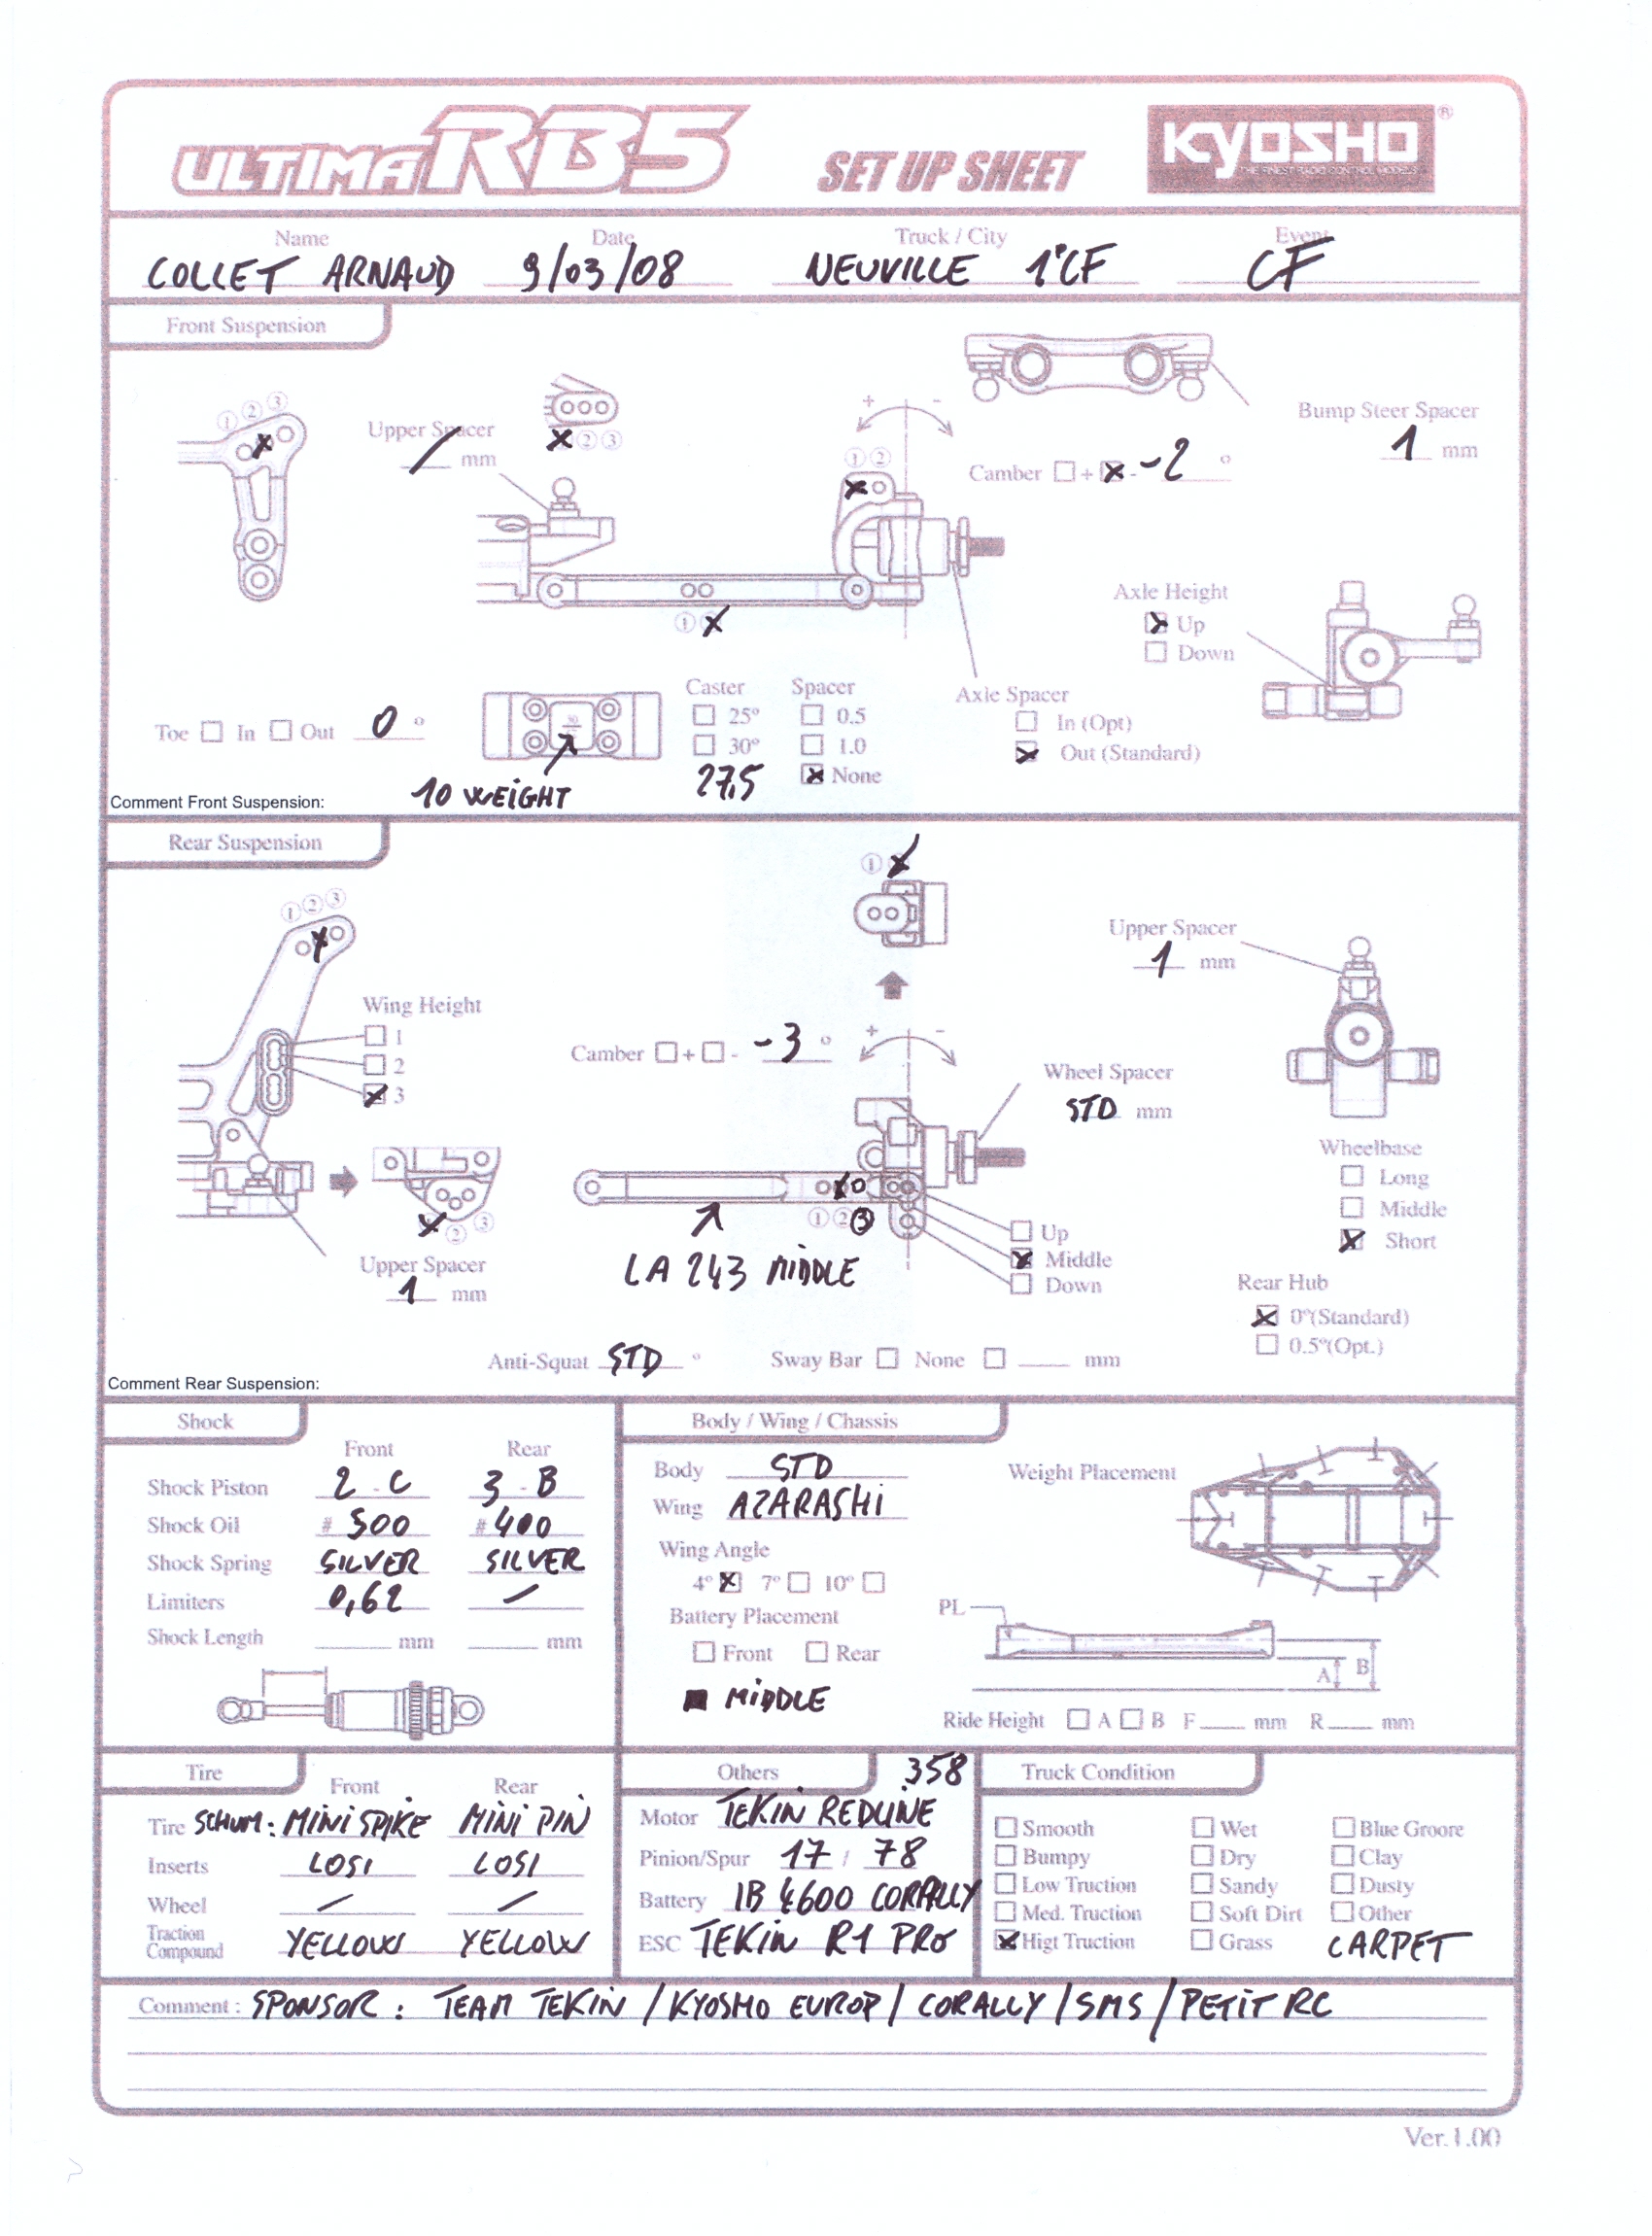 ULTIMA RB5 SET UP SHEET KYOSHO ®
THE FINEST RADIO CONTROL MODELS
Name Date Truck / City Event
COLLET ARNAUD 9/03/08 NEUVILLE 1°CF CF
Front Suspension
① ② ③
Upper Spacer
/ mm
② ③
+ -
① ②
Camber + - -2 °
Bump Steer Spacer
1 mm
①
Axle Height
Up
Down
Toe In Out 0 °
10 WEIGHT
Caster
25°
30°
27,5
Spacer
0.5
1.0
None
Axle Spacer
In (Opt)
Out (Standard)
Comment Front Suspension:
Rear Suspension
①
① ② ③
Upper Spacer
1 mm
Wing Height
1
2
3
Camber + - -3 °
+ -
Wheel Spacer
STD mm
② ③
Upper Spacer
1 mm
① ② ③
LA 243 MIDDLE
Up
Middle
Down
Wheelbase
Long
Middle
Short
Rear Hub
0°(Standard)
0.5°(Opt.)
Anti-Squat STD °
Sway Bar None mm
Comment Rear Suspension:
Shock
Front Rear
Shock Piston 2 - C 3 - B
Shock Oil # 500 # 400
Shock Spring SILVER SILVER
Limiters 0,62 /
Shock Length mm mm
Body / Wing / Chassis
Body STD
Wing AZARASHI
Wing Angle
4° 7° 10°
Battery Placement
Front Rear
MIDDLE
Weight Placement
PL
A B
Ride Height A B F mm R mm
Tire
Front Rear
Tire SCHUM: MINI SPIKE MINI PIN
Inserts LOSI LOSI
Wheel / /
Traction Compound YELLOW YELLOW
Others 358
Motor TEKIN REDLINE
Pinion/Spur 17 / 78
Battery IB 4600 CORALLY
ESC TEKIN R1 PRO
Truck Condition
Smooth Wet Blue Groore
Bumpy Dry Clay
Low Truction Sandy Dusty
Med. Truction Soft Dirt Other
Higt Truction Grass CARPET
Comment : SPONSOR : TEAM TEKIN / KYOSHO EUROP / CORALLY / SMS / PETIT RC
Ver.1.00